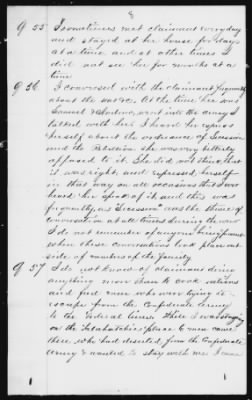 8
9 55 I sometimes met claimant every day
and stayed at her house for days
at a time and at other times I
did not see her for months at a
time
9 56 I conversed with the claimant frequently
about the war &c. At the time her sons
Samuel & were not with the army I
talked with her I heard her express
herself about the ordinance of Secession
and the Rebellion she was very bitterly
opposed to it. She did not think that
it was right, and expressed herself
in that way on all occasions that I ever
heard her speak of it, and this was
frequently, as Secession was the theme of
conversation at all times during the war
I do not remember of anyone being present
when these conversations took place out
side of members of the family
9 57 I do not know of claimant doing
anything more than to cook rations
and feed men who were trying to
escape from the Confederate Army
to the Federal lines. While I was staying
on the place 6 men came
there who had deserted from the Confederate
Army & wanted to stay with me. I